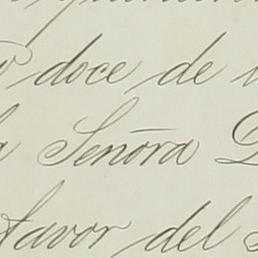 doce de
Señora
favor del